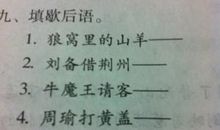 九、填歇后语。
1. 狼窝里的山羊——
2. 刘备借荆州——
3. 牛魔王请客——
4. 周瑜打黄盖——